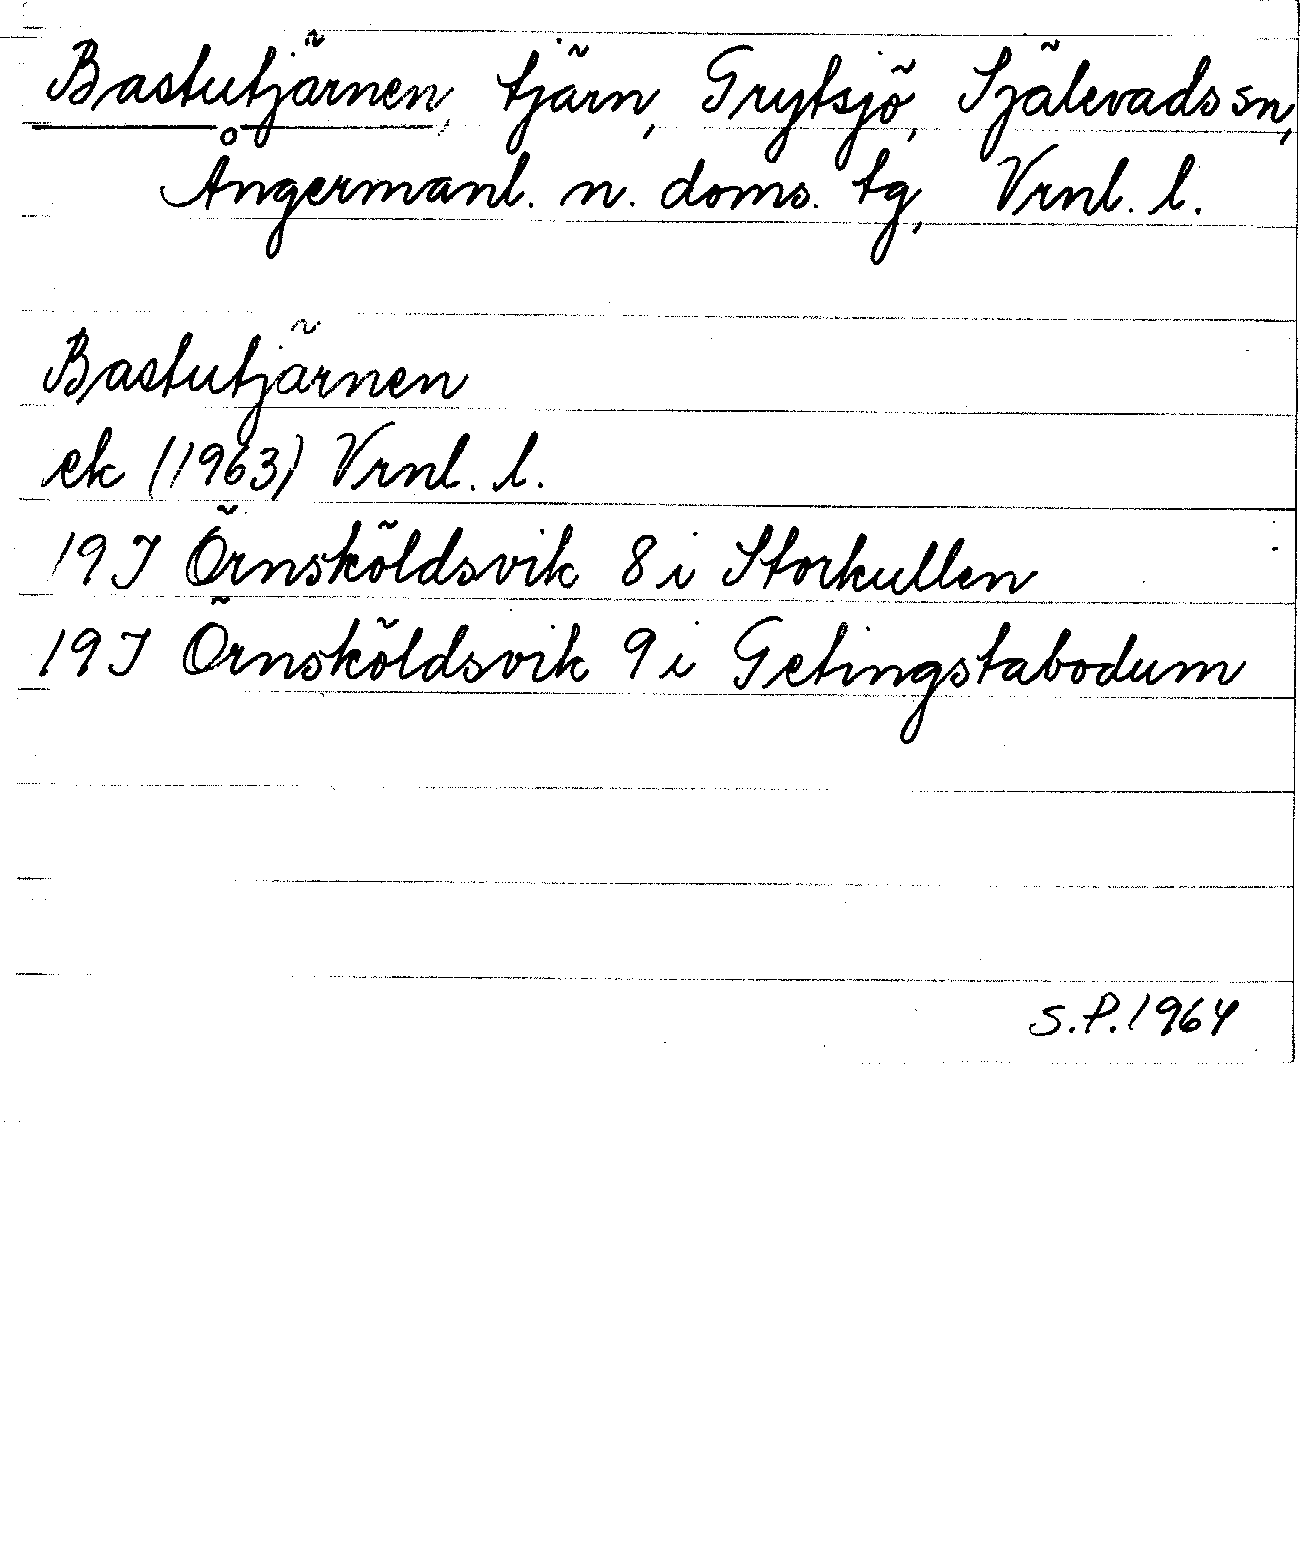 Bastutjärnen, tjärn, Grytsjö, Själevads sn,
Ångermanl. n. doms. tg, Vrnl. l.
Bastutjärnen
ek (1963) Vrnl. l.
19J Örnsköldsvik 8 i Storkullen
19J Örnsköldsvik 9 i Getingstabodum
S.P. 1964